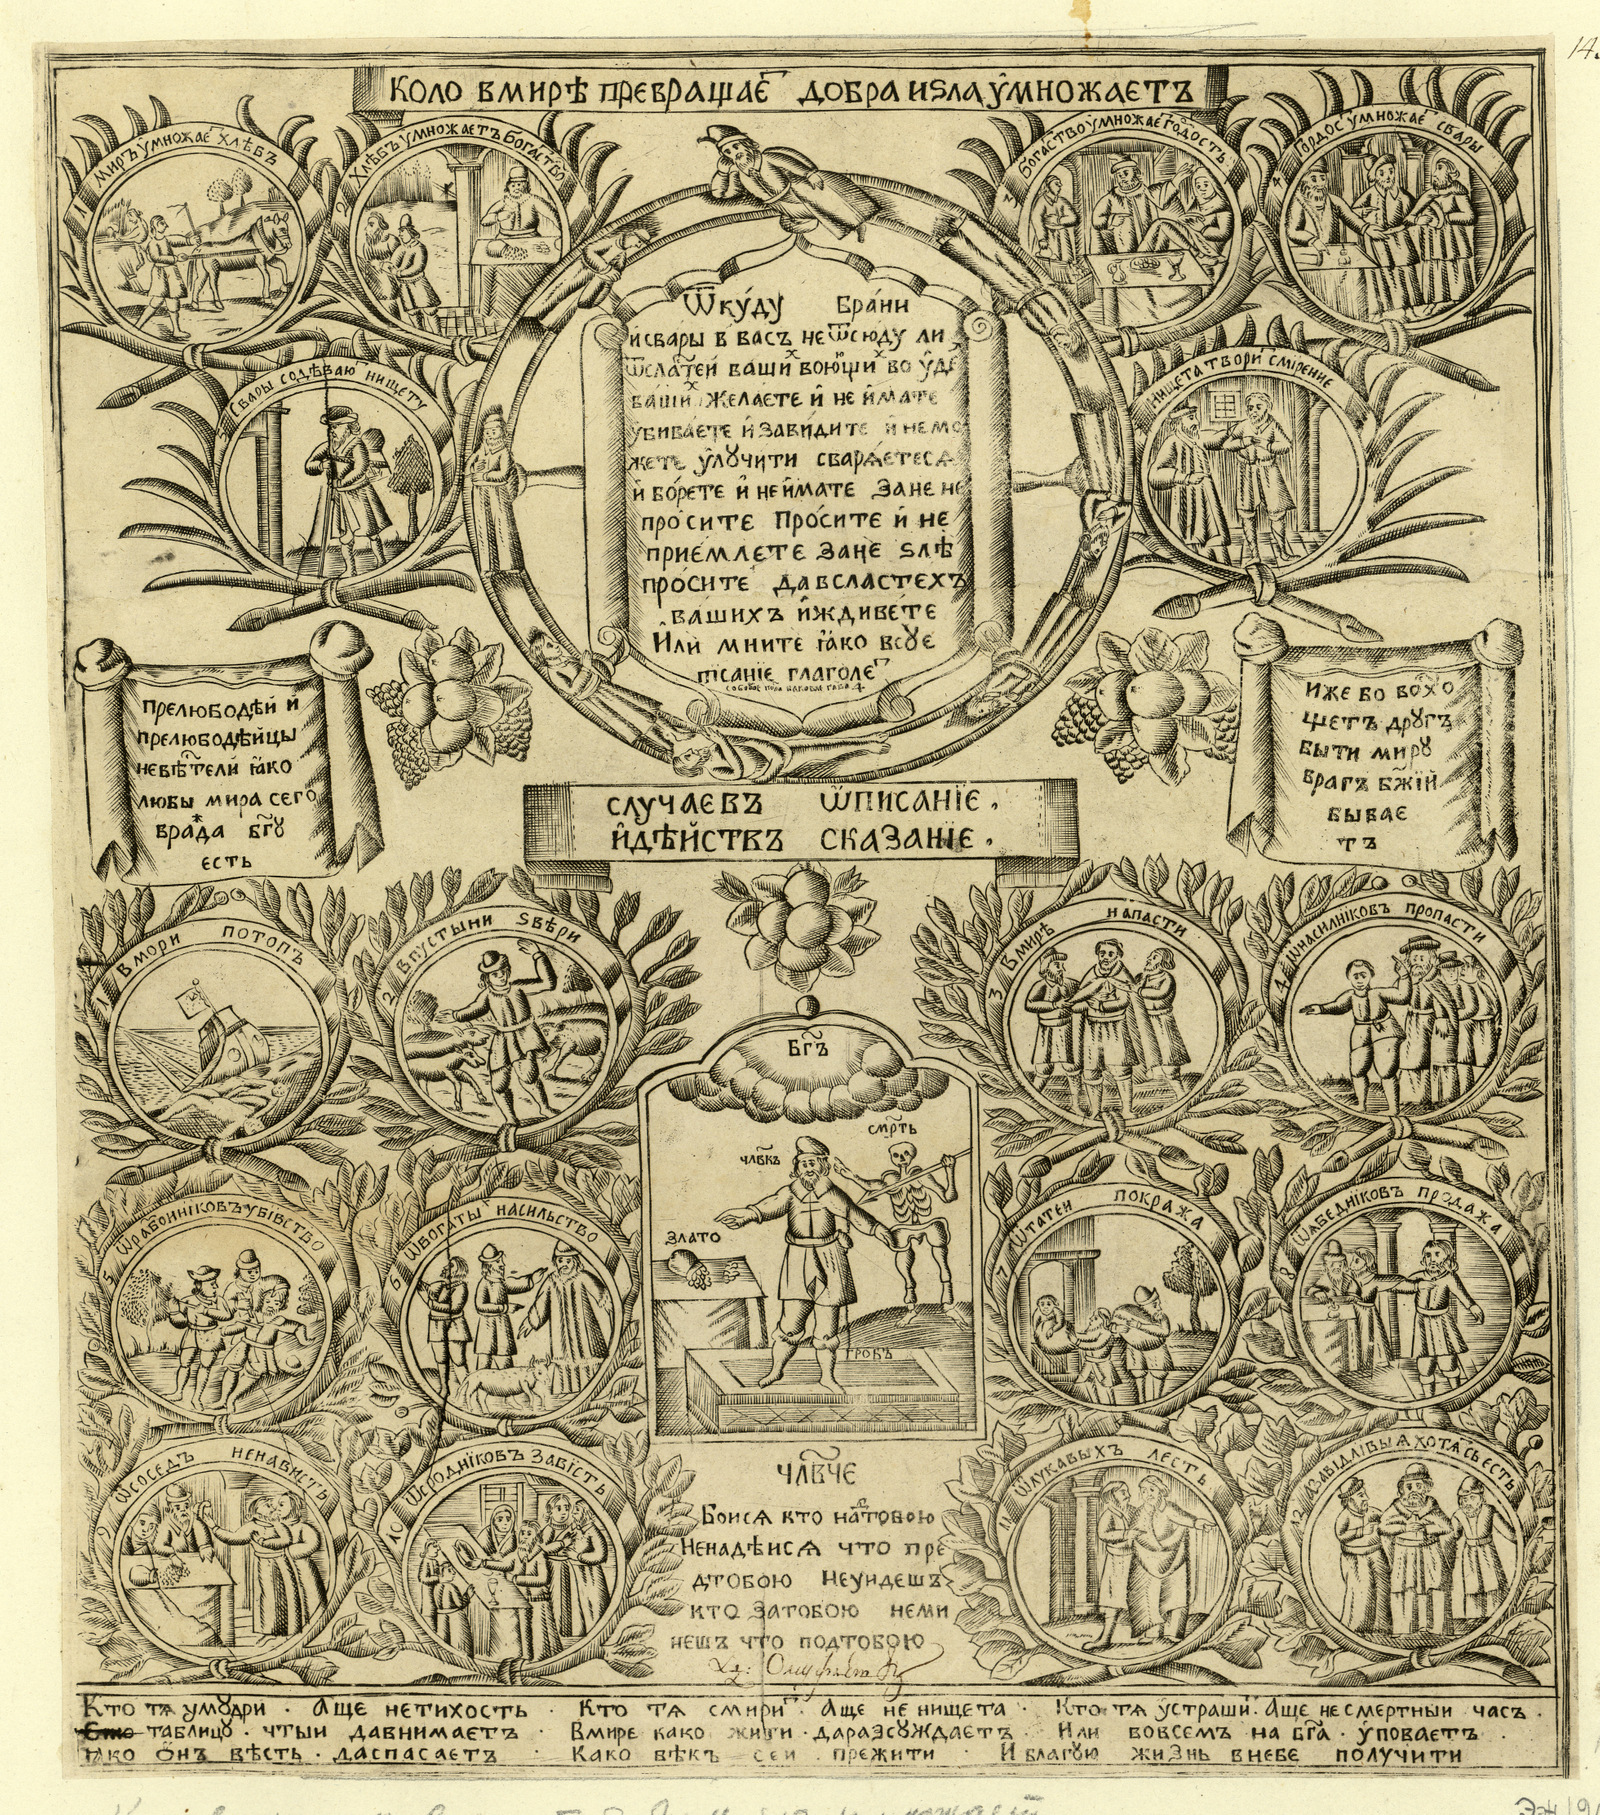 КОЛО ВМИРѢ ПРЕВРАЩАЄ҃ ДОБРА ИЅЛА ᲂУМНОЖАЕТЪ
1 МИРЪ УМНОЖАЄ ХЛѢБЪ
2 ХЛѢБЪ УМНОЖАЕТЪ БОГАСТВО
3 БОГАСТВО УМНОЖАЕ ГОРДОСТЬ
4 ГОРДОС УМНОЖАЕ СВАРЫ
5 СВАРЫ СОДѢВАЮ НИЩЕТУ
НИЩЕТА ТВОРИ СМІРЕНИЕ
ѾКУ́ДУ БРА́НИ
И́СВАРЫ В ВАСЪ НЕѾСЮДУ ЛИ
ѾСЛАСТЕЙ ВАШИХ ВОЮЩИХ ВО УДЕ
ВАШИХ ЖЕЛАЕТЕ И НЕ ИМАТЕ
УБИВАЕТЕ И ЗАВИДИТЕ И НЕ МО
ЖЕТЕ УЛУЧИТИ СВАРѦЕТЕСѦ
И БОРЕТЕ И НЕ ИМАТЕ ЗАНЕ НЕ
ПРОСИТЕ ПРОСИТЕ И НЕ
ПРИЕМЛЕТЕ ЗАНЕ ЅЛѢ
ПРОСИТЕ ДАВСЛАСТЕХЪ
ВАШИХЪ ИЖДИВЕТЕ
ИЛИ МНИТЕ ꙖКО ВСУЕ
ПИСАНІЕ ГЛАГОЛЕТ
ПРЕЛЮБОДѢИ И
ПРЕЛЮБОДѢИЦЫ
НЕВѢСТЕЛИ ꙖКО
ЛЮБЫ МИРА СЕГО
ВРАЖДА БГ҃У
ЕСТЬ
ИЖЕ БО ВОСХО
ЩЕТЪ ДРУГЪ
БЫТИ МИРУ
ВРАГЪ БЖ҃ІЙ
БЫВАЕ
ТЪ
СЛУЧАЕВЪ ѠПИСАНІЕ.
ИДѢЙСТВЪ СКАЗАНІЕ.
1 ВМОРИ ПОТОПЪ
2 ВПУСТЫНИ ЅВѢРИ
3 ВМИРѢ НАПАСТИ
4 Ѿ НАСИЛНІКОВЪ ПРОПАСТИ
5 ѾРАЗБОИНІКОВЪ УБІВСТВО
6 ѾБОГАТЫ НАСИЛЬСТВО
7 ѾТАТЕИ ПОКРАЖА
8 ѾЯБЕДНІКОВЪ ПРОДАЖА
9 ѾСОСЕДЪ НЕНАВИСТЬ
10 ѾСРОДНІКОВЪ ЗАВІСТЬ
11 ѾЛУКАВЫХЪ ЛЕСТЬ
БГ҃Ъ
СМР҃ТЬ
ЧЛВ҃КЪ
ЗЛАТО
ГРОБЪ
ЧЛВ҃ЧЕ
БОИСѦ КТО НАТОБОЮ
НЕНАДѢИСѦ ЧТО ПРЕ
ДТОБОЮ НЕУИДЕШЪ
КТО ЗАТОБОЮ НЕМИ
НЕШЪ ЧТО ПОДТОБОЮ
КТО ТѦ УМУДРИ · АЩЕ НЕТИХОСТЬ · КТО ТѦ СМИРИ · АЩЕ НЕ НИЩЕТА · КТО ТѦ УСТРАШИ · АЩЕ НЕ СМЕРТНЫИ ЧАСЪ ·
ТАБЛИЦУ · ЧТЫИ ДАВНИМАЕТЪ · ВМИРЕ КАКО ЖИТИ · ДАРАЗСУЖДАЕТЪ · ИЛИ ВОВСЕМЪ НА БГ҃А · УПОВАЕТЪ ·
ꙖКО ОНЪ ВѢСТЬ · ДАСПАСАЕТЪ · КАКО ВѢКЪ СЕИ ПРЕЖИТИ · И БЛАГУЮ ЖИЗНЬ ВНЕБЕ ПОЛУЧИТИ